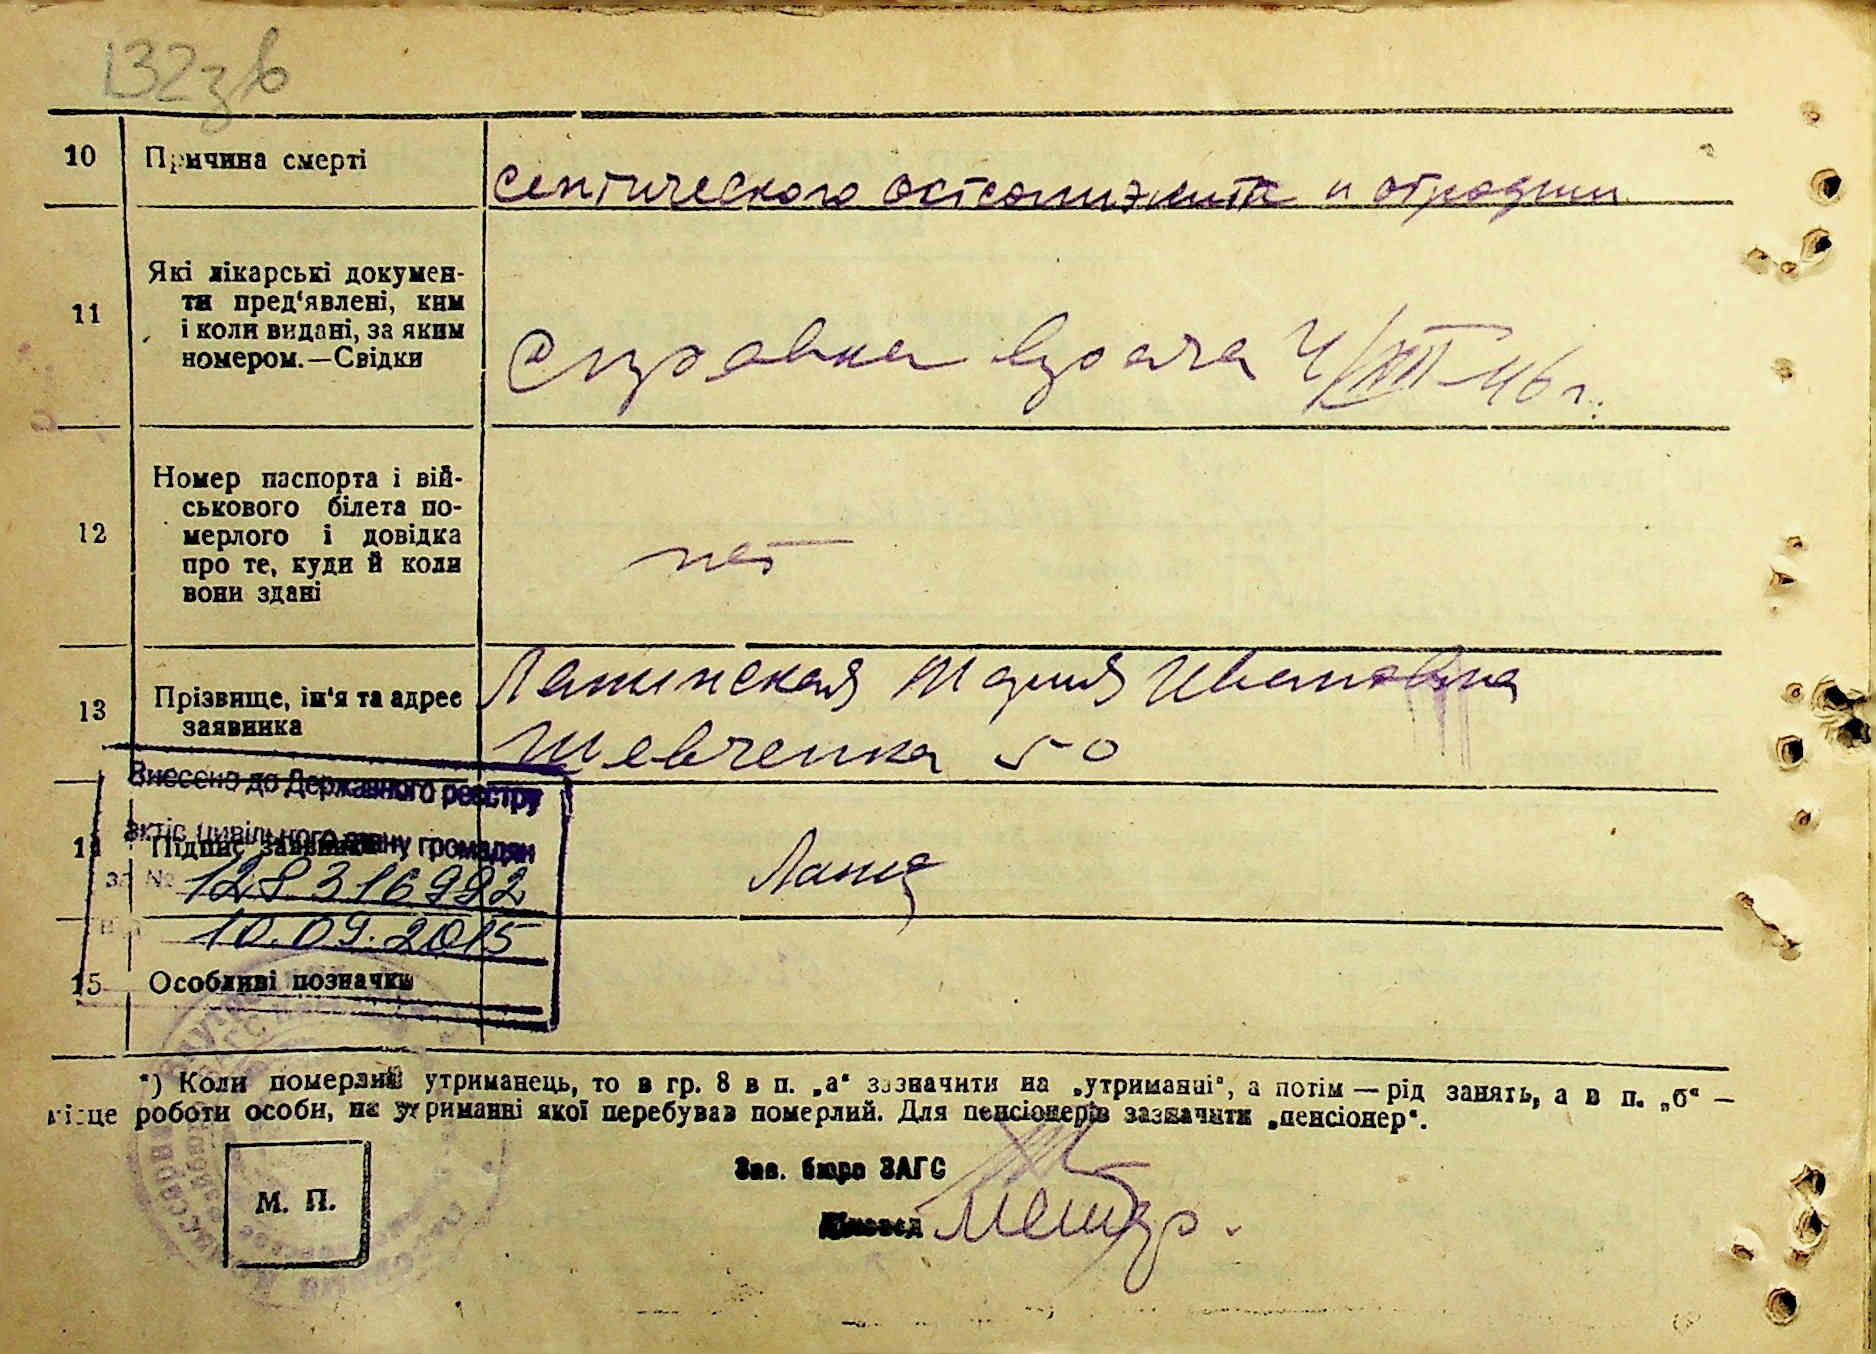 132зв
10 Причина смерті
септического остеомиэлита и
11 Які лікарські докумен-
ти пред'явлені, ким
і коли видані, за яким
номером.—Свідки
Справка врача 4/XII-46 г.
12 Номер паспорта і вій-
ськового білета по-
мерлого і довідка
про те, куди й коли
вони здані
нет
13 Прізвище, ім'я та адрес
заявника
Мария Ивановна
Шевченка 50
Внесено до Державного реєстру
актів цивільного стану громадян
14 Підпис заявника
за № 128316982
10.09.2015
15 Особливі позначки
*) Коли померлий утриманець, то в гр. 8 в п. „а“ зазначити на „утриманні“, а потім — рід занять, а в п. „б“ —
місце роботи особи, на утриманні якої перебував померлий. Для пенсіонерів зазначити „пенсіонер“.
Зав. бюро ЗАГС
М. П.
Діловод